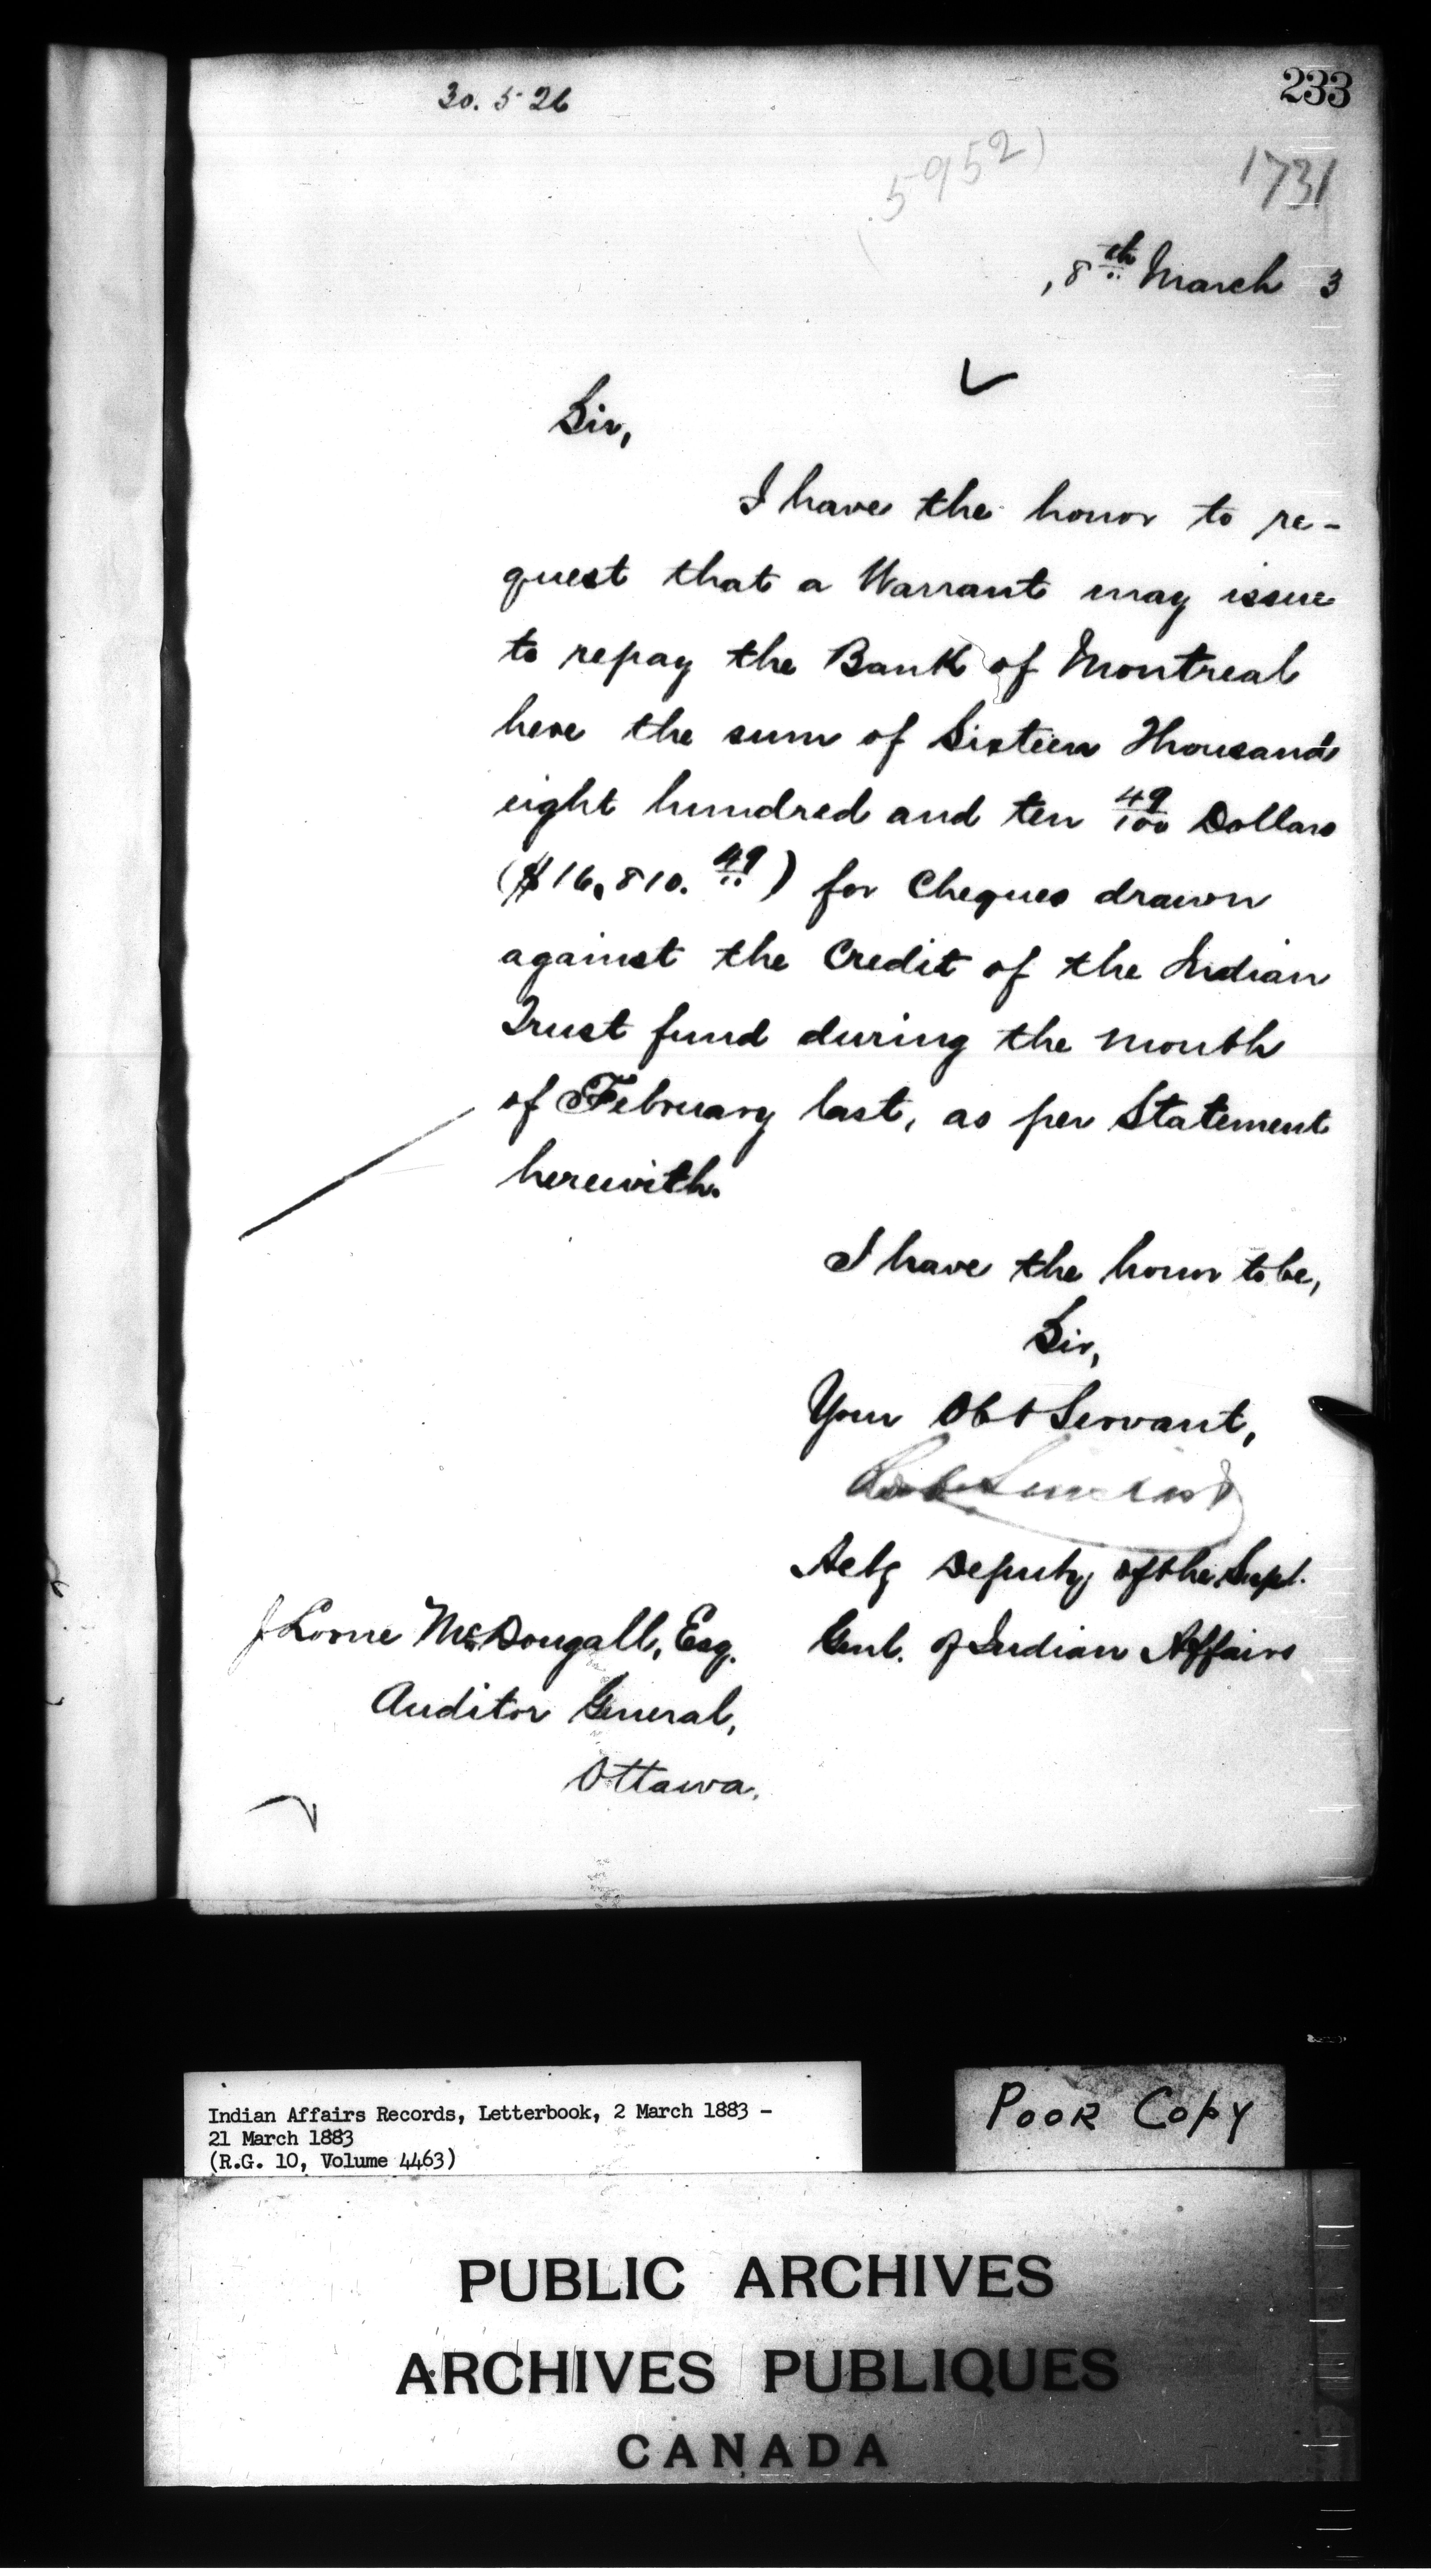 233
30. 5 26
5952)
1731
, 8th March 3
Sir,
I have the honor to re-
quest that a Warrant may issue
to repay the Bank of Montreal
here the sum of Sixteen Thousand
eight hundred and ten 49/100 Dollars
($16,810.49) for Cheques drawn
against the Credit of the Indian
Trust fund during the month
of February last, as per Statement
herewith.
I have the honor to be,
Sir,
Your Obt Servant,
Actg Deputy of the Supt.
Genl. of Indian Affairs
J Lorne McDougall, Esq.
Auditor General,
Ottawa.
Indian Affairs Records, Letterbook, 2 March 1883 -
21 March 1883
(R.G. 10, Volume 4463)
POOR COPY
PUBLIC ARCHIVES
ARCHIVES PUBLIQUES
CANADA